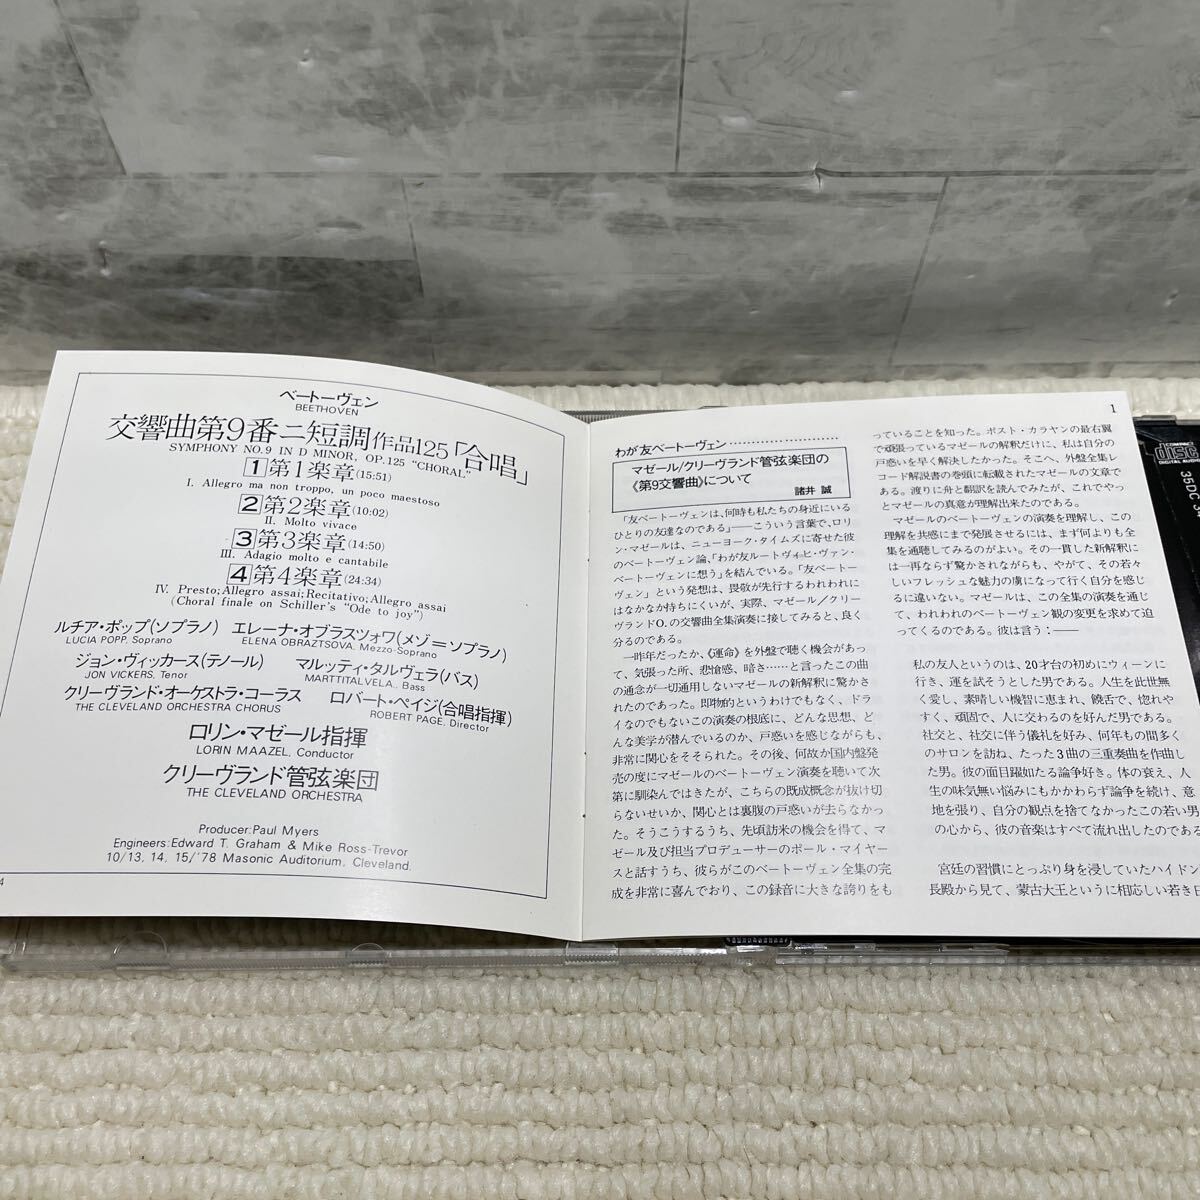 ベートーヴェン
BEETHOVEN
交響曲第9番ニ短調作品125「合唱」
SYMPHONY NO.9 IN D MINOR, OP.125 "CHORAL"
1 第1楽章(15:51)
I. Allegro ma non troppo, un poco maestoso
2 第2楽章(10:02)
II. Molto vivace
3 第3楽章(14:50)
III. Adagio molto e cantabile
4 第4楽章(24:34)
IV. Presto; Allegro assai; Recitativo; Allegro assai
(Choral finale on Schiller's "Ode to joy")
ルチア・ポップ(ソプラノ) エレーナ・オブラスツォワ(メゾ=ソプラノ)
LUCIA POPP, Soprano ELENA OBRAZTSOVA, Mezzo-Soprano
ジョン・ヴィッカース(テノール) マルッティ・タルヴェラ(バス)
JON VICKERS, Tenor MARTTITALVELA, Bass
クリーヴランド・オーケストラ・コーラス ロバート・ペイジ(合唱指揮)
THE CLEVELAND ORCHESTRA CHORUS ROBERT PAGE, Director
ロリン・マゼール指揮
LORIN MAAZEL, Conductor
クリーヴランド管弦楽団
THE CLEVELAND ORCHESTRA
Producer:Paul Myers
Engineers:Edward T. Graham & Mike Ross-Trevor
10/13, 14, 15/'78 Masonic Auditorium, Cleveland.
4
1
わが友ベートーヴェン……………………
マゼール/クリーヴランド管弦楽団の
《第9交響曲》について
諸井 誠
「友ベートーヴェンは、何時も私たちの身近にいる
ひとりの友達なのである」――こういう言葉で、ロリ
ン・マゼールは、ニューヨーク・タイムズに寄せた彼
のベートーヴェン論、「わが友ルートヴィヒ・ヴァン・
ベートーヴェンに想う」を結んでいる。「友ベートー
ヴェン」という発想は、畏敬が先行するわれわれに
はなかなか持ちにくいが、実際、マゼール/クリー
ヴランドO.の交響曲全集演奏に接してみると、良く
分るのである。
一昨年だったか、《運命》を外盤で聴く機会があっ
て、気張った所、悲愴感、暗さ……と言ったこの曲
の通念が一切通用しないマゼールの新解釈に驚かさ
れたのであった。即物的というわけでもなく、ドラ
イなのでもないこの演奏の根底に、どんな思想、ど
んな美学が潜んでいるのか、戸惑いを感じながらも、
非常に関心をそそられた。その後、何故か国内盤発
売の度にマゼールのベートーヴェン演奏を聴いて次
第に馴染んではきたが、こちらの既成概念が抜け切
らないせいか、関心とは裏腹の戸惑いが去らなかっ
た。そうこうするうち、先頃訪米の機会を得て、マ
ゼール及び担当プロデューサーのポール・マイヤー
スと話すうち、彼らがこのベートーヴェン全集の完
成を非常に喜んでおり、この録音に大きな誇りをも
っていることを知った。ポスト・カラヤンの最右翼
で頑張っているマゼールの解釈だけに、私は自分の
戸惑いを早く解決したかった。そこへ、外盤全集レ
コード解説書の巻頭に転載されたマゼールの文章で
ある。渡りに舟と翻訳を読んでみたが、これでやっ
とマゼールの真意が理解出来たのである。
マゼールのベートーヴェンの演奏を理解し、この
理解を共感にまで発展させるには、まず何よりも全
集を通聴してみるのがよい。その一貫した新解釈に
は一再ならず驚かされながらも、やがて、その若々
しいフレッシュな魅力の虜になって行く自分を感じ
るに違いない。マゼールは、この全集の演奏を通じ
て、われわれのベートーヴェン観の変更を求めて迫
ってくるのである。彼は言う:――
私の友人というのは、20才台の初めにウィーンに
行き、運を試そうとした男である。人生を此世無
く愛し、素晴しい機智に恵まれ、饒舌で、惚れや
すく、頑固で、人に交わるのを好んだ男である。
社交と、社交に伴う儀礼を好み、何年もの間多く
のサロンを訪ね、たった3曲の三重奏曲を作曲し
た男。彼の面目躍如たる論争好き。体の衰え、人
生の味気無い悩みにもかかわらず論争を続け、意
地を張り、自分の観点を捨てなかったこの若い男
の心から、彼の音楽はすべて流れ出したのである
宮廷の習慣にとっぷり身を浸していたハイドン
長殿から見て、蒙古大王というに相応しい若き
COMPACT
disc
DIGITAL AUDIO
35DC